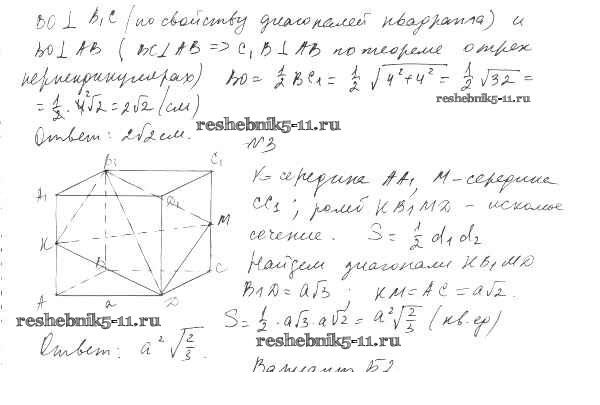 BO ⊥ B₁C (по свойству диагоналей квадрата) и
BO ⊥ AB ( BC ⊥ AB => C₁B ⊥ AB по теореме о трех
перпендикулярах) BO = 1/2 BC₁ = 1/2 √(4²+4²) = 1/2 √32 =
= 1/2 · 4√2 = 2√2 (см)
Ответ: 2√2 см.
reshebnik5-11.ru
N3
B₁ C₁
A₁ D₁
K M
B C
A a D
K - середина AA₁, M - середина
CC₁; ромб KB₁MD - искомое
сечение. S = 1/2 d₁d₂
Найдем диагонали KB₁MD
B₁D = a√3 ; KM = AC = a√2.
reshebnik5-11.ru
S = 1/2 · a√3 · a√2 = a² √(2/3) (кв.ед)
reshebnik5-11.ru
Ответ: a² √(2/3).
Вариант Б2